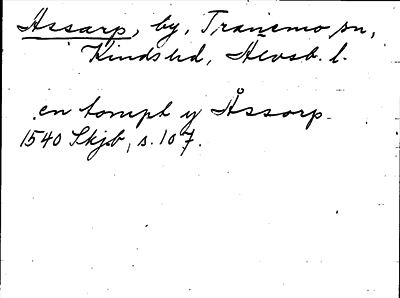 Assarp, by, Tranemo sn,
Kinds hd, Älvsb. l.
en tompt y Åssorp.
1540 Skjb, s. 107.